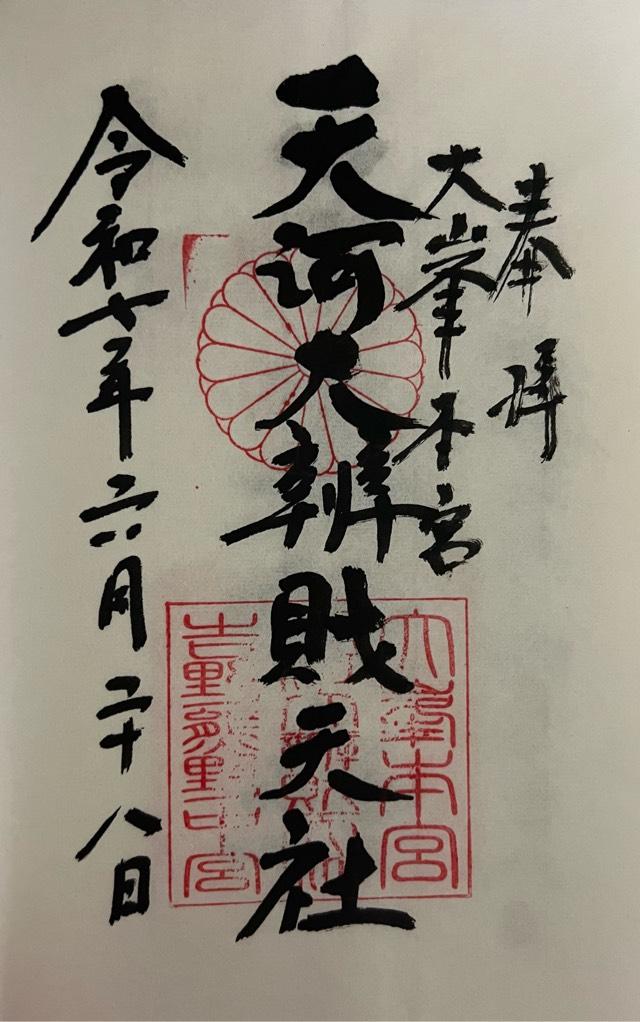 奉拝
大峯本宮
天河大辨財天社
令和七年六月二十八日
大峯本宮
吉野熊野中宮